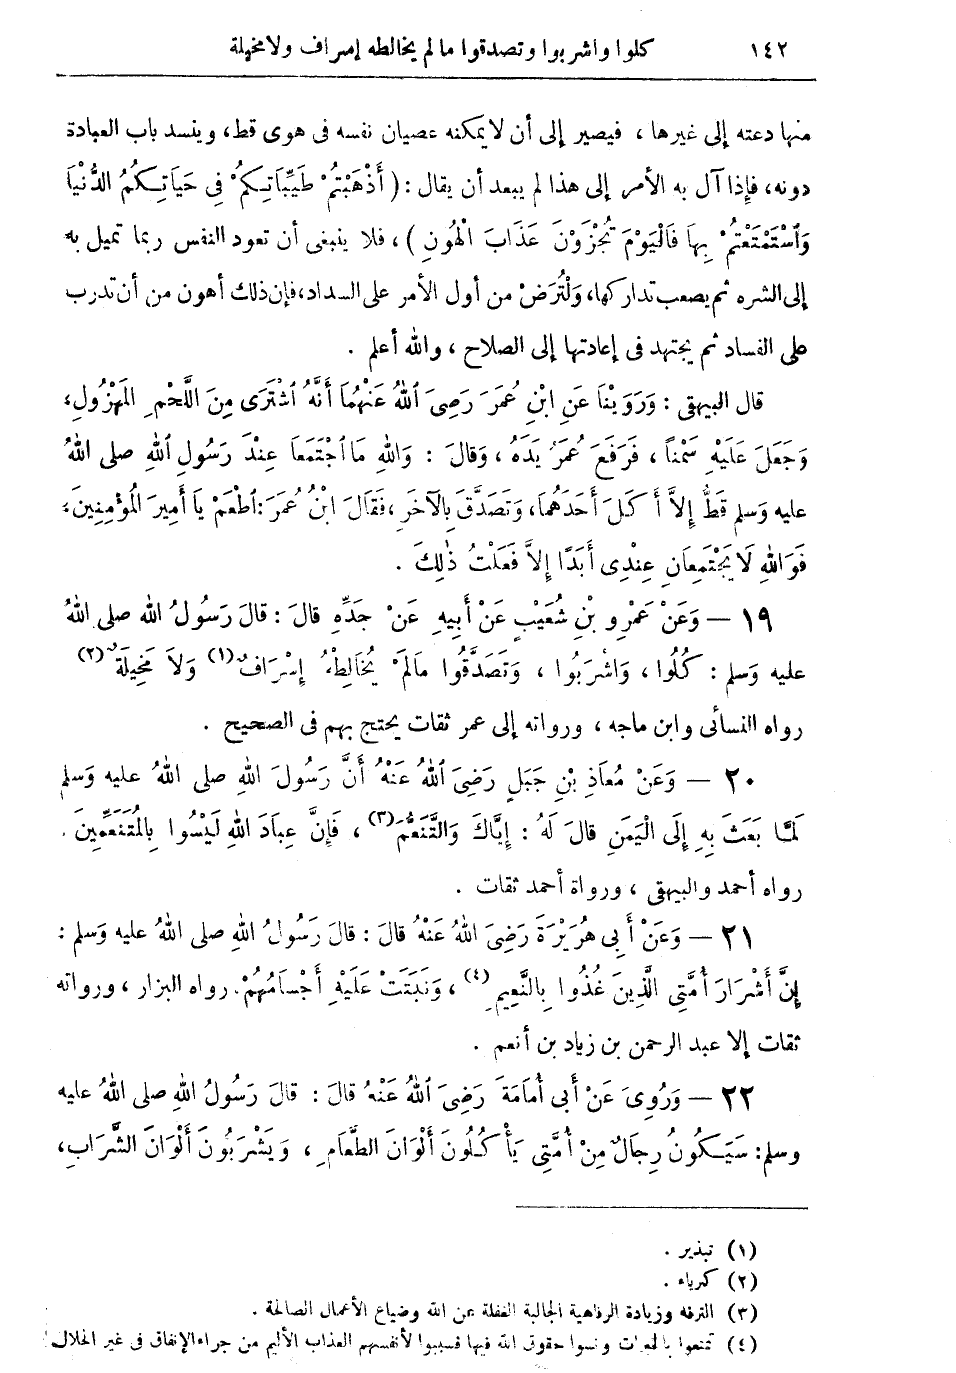 ١٤٢ كلوا واشربوا وتصدقوا مالم يخالطه إسراف ولا مخيلة
منها دعته إلى غيرها ، فيصير إلى أن لا يمكنه عصيان نفسه فى هوى قط، وينسد باب العبادة
دونه، فإذا آل به الأمر إلى هذا لم يبعد أن يقال : ( أَذْهَبْتُمْ طَيِّبَاتِكُمْ فِى حَيَاتِكُمُ الدُّنْيَا
وَٱسْتَمْتَعْتُمْ بِهَا فَالْيَوْمَ تُجْزَوْنَ عَذَابَ الْهُونِ ) ، فلا ينبغى أن تعود النفس ربما تميل به
إلى الشره ثم يصعب تداركها، وَلْتُرَضْ من أول الأمر على السداد، فإن ذلك أهون من أن تدرب
على الفساد ثم يجتهد فى إعادتها إلى الصلاح ، والله أعلم .
قال البيهقى : وَرَوَيْنَا عَنِ ابْنِ عُمَرَ رَضِىَ ٱللهُ عَنْهُمَا أَنَّهُ ٱشْتَرَى مِنَ اللَّحْمِ الْمَهْزُولِ،
وَجَعَلَ عَلَيْهِ سَمْنًا ، فَرَفَعَ عُمَرُ يَدَهُ ، وَقَالَ : وَاللهِ مَا ٱجْتَمَعَا عِنْدَ رَسُولِ ٱللهِ صلى اللهُ
عليه وَسلم قَطُّ إِلاَّ أَكَلَ أَحَدَهُمَا، وَتَصَدَّقَ بِالآخَرِ ، فَقَالَ ابْنُ عُمَرَ : ٱطْعَمْ يَا أَمِيرَ الْمُؤْمِنِينَ،
فَوَاللهِ لَا يَجْتَمِعَانِ عِنْدِى أَبَدًا إِلاَّ فَعَلْتُ ذٰلِكَ .
١٩ — وَعَنْ عَمْرِو بْنِ شُعَيْبٍ عَنْ أَبِيهِ عَنْ جَدِّهِ قالَ : قالَ رَسُولُ الله صلى اللهُ
عليه وَسلم : كُلُوا ، وَاشْرَبُوا ، وَتَصَدَّقُوا مَالَمْ يُخَالِطْهُ إِسْرَافٌ(١) وَلاَ مَخِيلَةٌ(٢)
رواه النسائى وابن ماجه ، ورواته إلى عمر ثقات يحتج بهم فى الصحيح .
٢٠ — وَعَنْ مُعَاذِ بْنِ جَبَلٍ رَضِىَ ٱللهُ عَنْهُ أَنَّ رَسُولَ اللهِ صلى اللهُ عليه وَسلم
لَمَّا بَعَثَ بِهِ إِلَى الْيَمَنِ قالَ لَهُ : إِيَّاكَ وَالتَّنَعُّمَ(٣) ، فَإِنَّ عِبَادَ اللهِ لَيْسُوا بِالْمُتَنَعِّمِينَ .
رواه أحمد والبيهقى ، ورواة أحمد ثقات .
٢١ — وَعَنْ أَبِى هُرَيْرَةَ رَضِىَ اللهُ عَنْهُ قالَ : قالَ رَسُولُ اللهِ صلى اللهُ عليه وَسلم :
إِنَّ أَشْرَارَ أُمَّتِى الَّذِينَ غُذُوا بِالنَّعِيمِ(٤) ، وَنَبَتَتْ عَلَيْهِ أَجْسَامُهُمْ. رواه البزار ، ورواته
ثقات إلا عبد الرحمن بن زياد بن أنعم .
٢٢ — وَرُوِىَ عَنْ أَبِى أُمَامَةَ رَضِىَ ٱللهُ عَنْهُ قالَ : قالَ رَسُولُ اللهِ صلى اللهُ عليه
وسلم: سَيَكُونُ رِجَالٌ مِنْ أُمَّتِى يَأْكُلُونَ أَلْوَانَ الطَّعَامِ ، وَيَشْرَبُونَ أَلْوَانَ الشَّرَابِ،
(١) تبذير .
(٢) كبرياء .
(٣) الترفه وزيادة الرفاهية الجالبة الغفلة عن الله وضياع الأعمال الصالحة .
(٤) تمتعوا بالخيرات ونسوا حقوق الله فيها فسببوا لأنفسهم العذاب الأليم من جراء الإنفاق فى غير الحلال